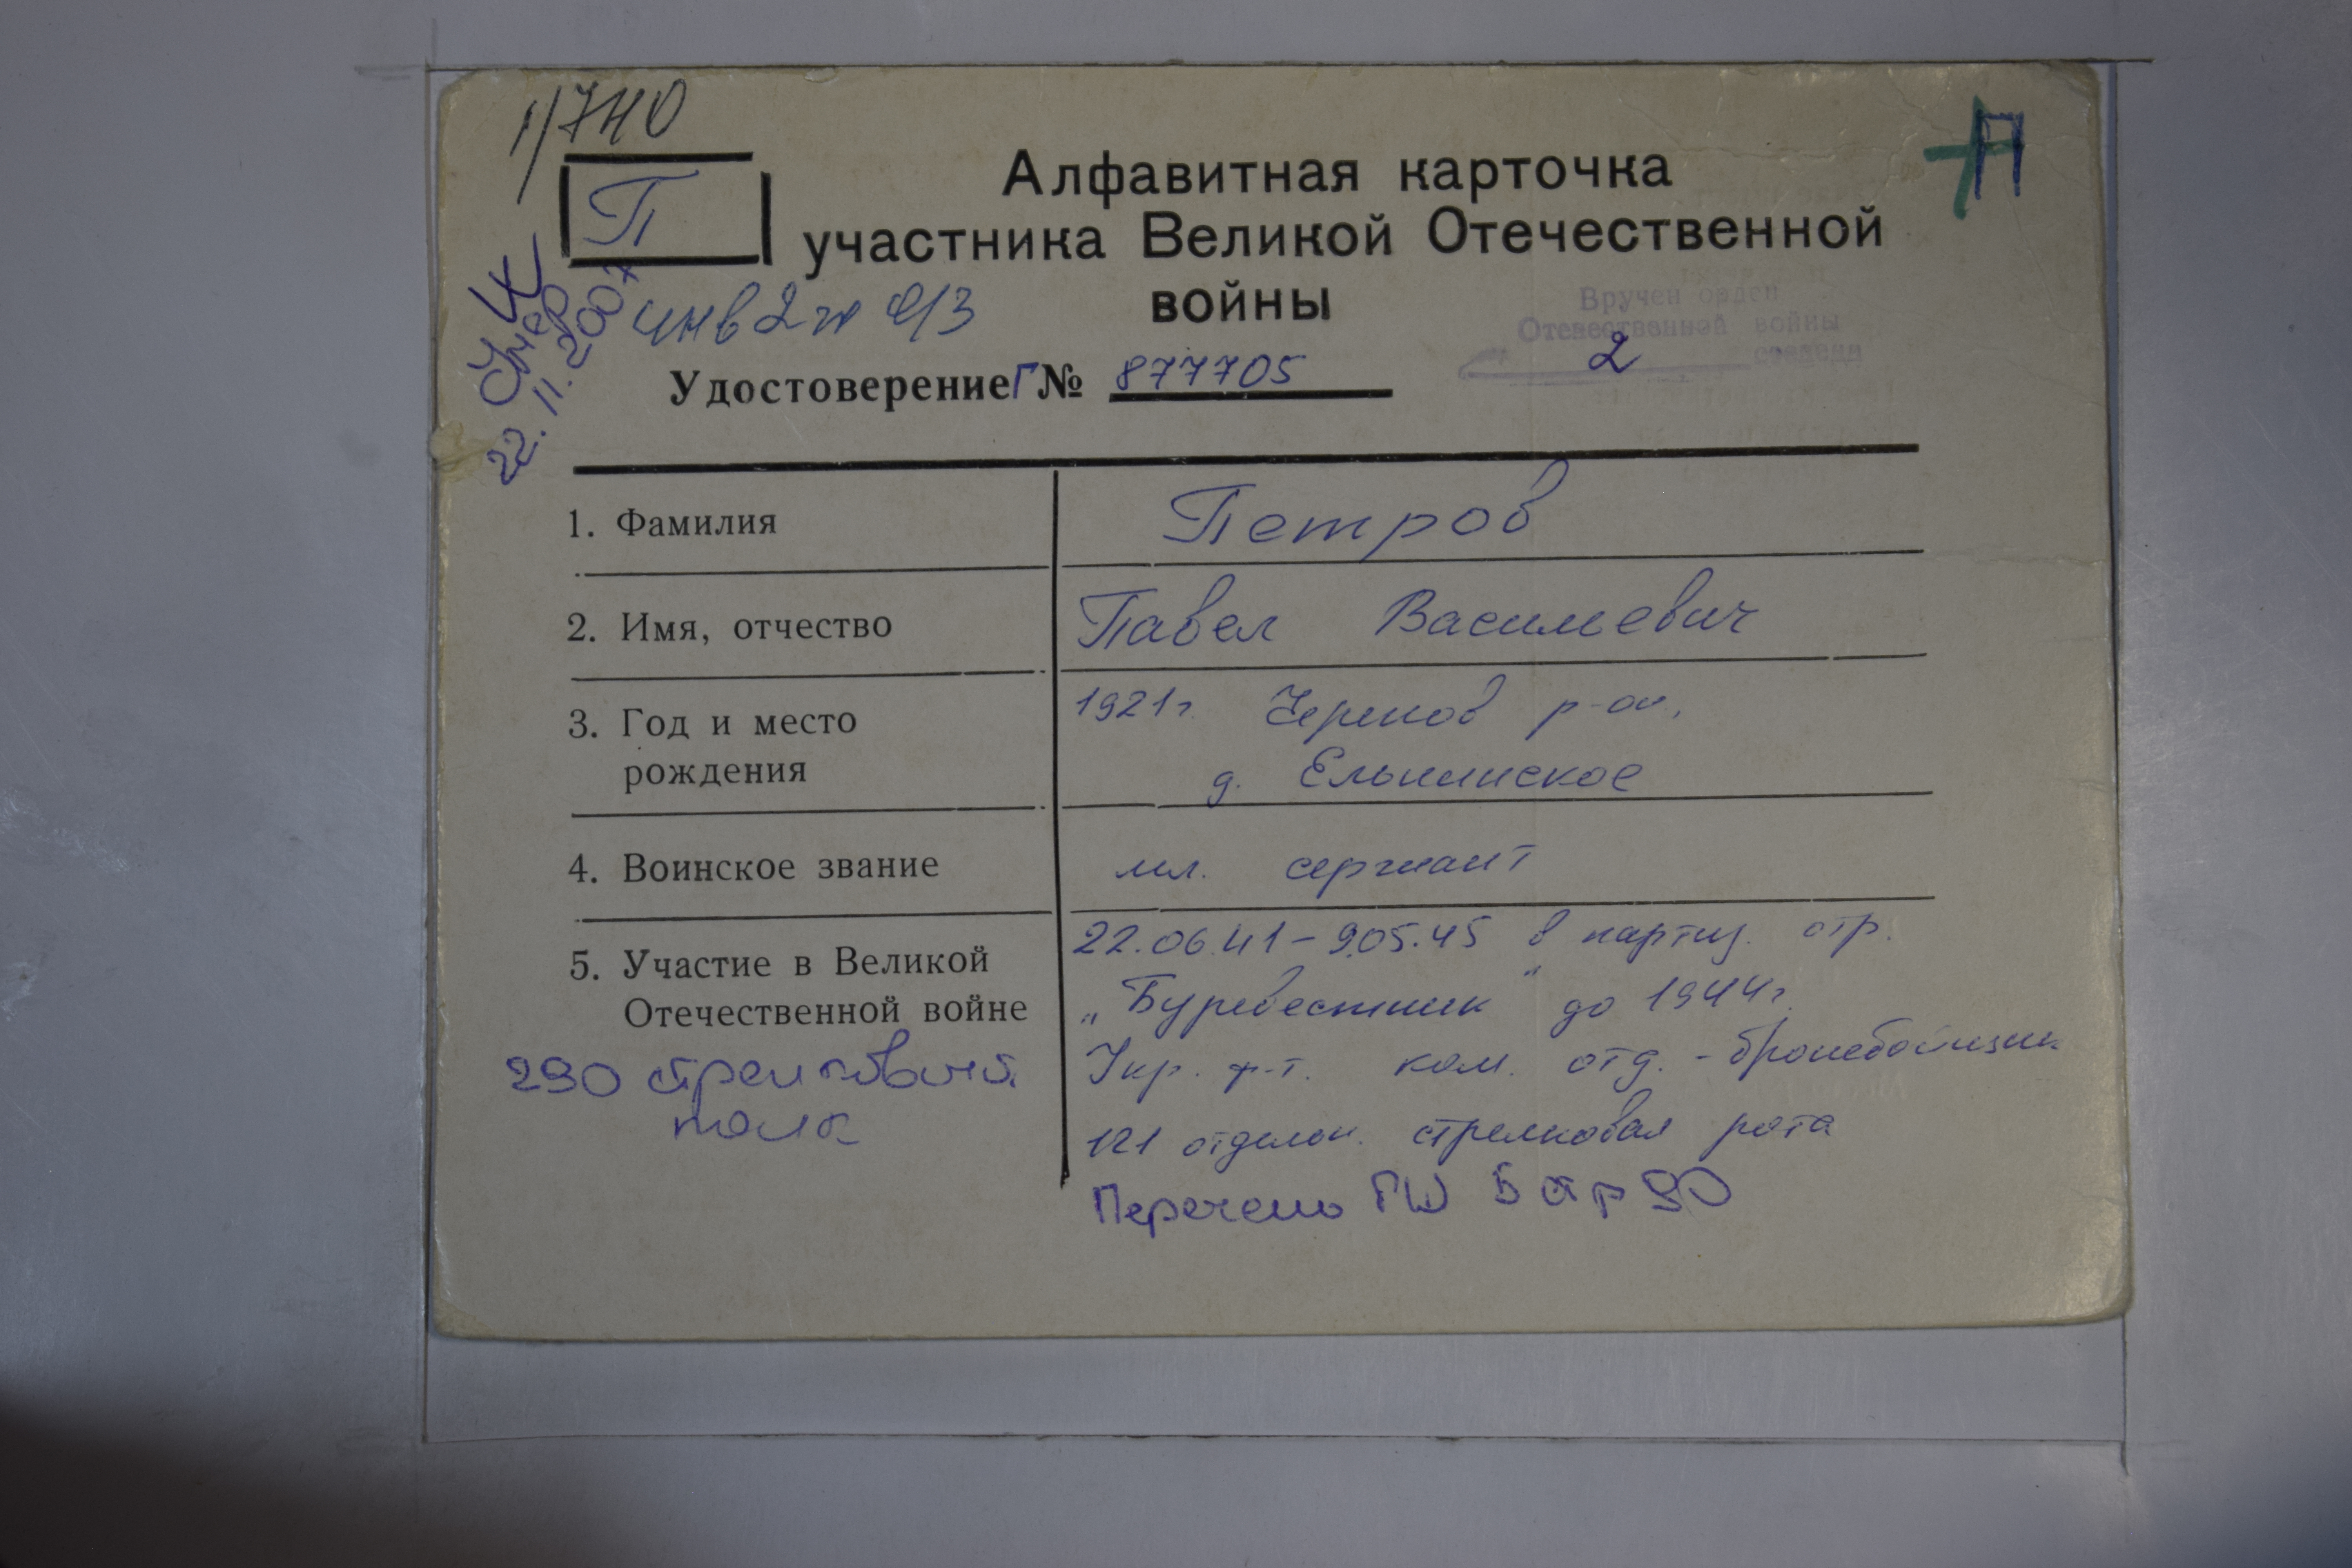 1/740
П
П
Алфавитная карточка
участника Великой Отечественной
войны
инв 2 гр
Умер
22.11.2007
Вручен орден
Отечественной войны
2 степени
Удостоверение Г № 877705
1. Фамилия
Петров
2. Имя, отчество
Павел Васильевич
3. Год и место
рождения
1921г. Черепов р-он,
д.
4. Воинское звание
мл. сержант
5. Участие в Великой
Отечественной войне
22.06.41-9.05.45 в партиз. отр.
„Буревестник" до 1944г.
Укр. ф-т. ком. отд. - бронебойщик
121 отдельн. стрелковая рота
290 стрелковый
полк
Перечень ГШ 5 стр 90